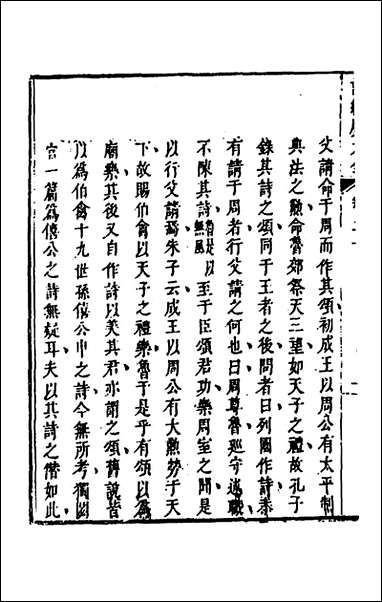 父請命于周而作其頌初成王以周公有太平制
典法之勲命魯郊祭天三望如天子之禮故孔子
錄其詩之頌同于王者之後問者曰列國作詩泰
有請于周者行父請之何也曰周尊魯巡守述職
不陳其詩魯是以無風至于臣頌君功樂周室之聞是
以行父請焉朱子云成王以周公有大勲勞于天
下故賜伯禽以天子之禮樂魯于是乎有頌以爲
廟樂其後又自作詩以美其君亦謂之頌舊說皆
以爲伯禽十九世孫僖公申之詩今無所考獨閟
宮一篇爲僖公之詩無疑耳夫以其詩之僭如此